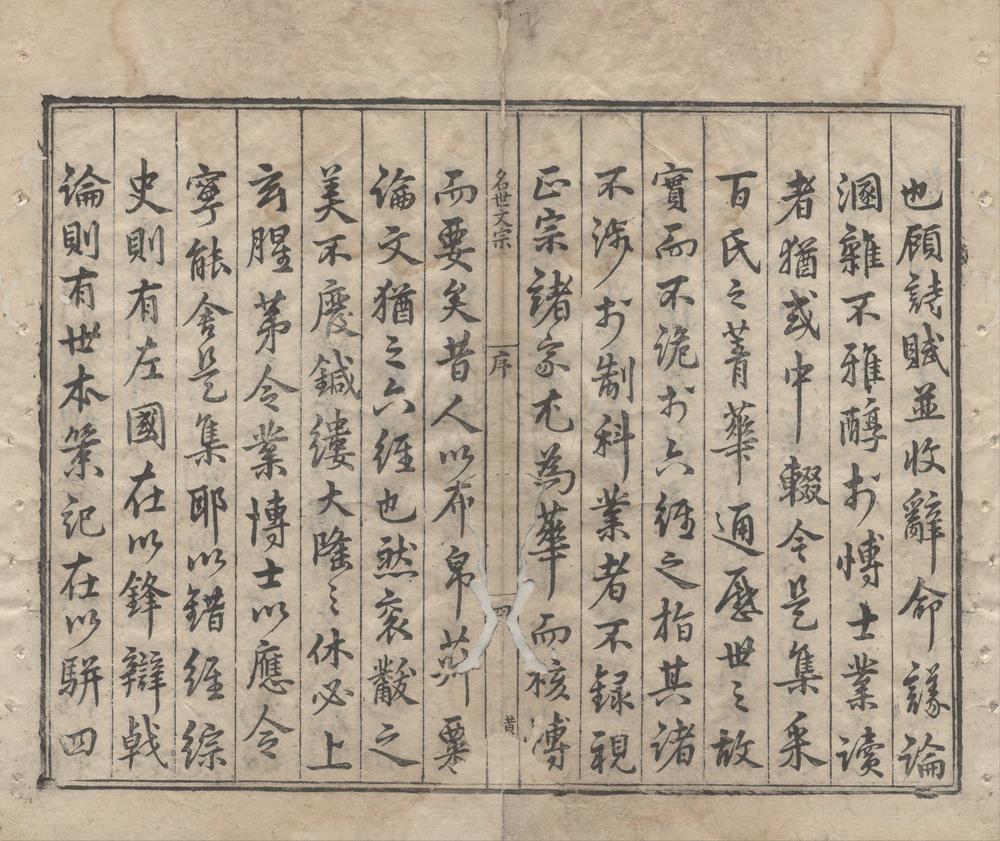 也顧詩賦並收辭命議論
溷雜不雅醇於博士業讀
者猶或中輟今是集采
百氏之菁華通歷世之故
實而不詭於六經之指其諸
不涉於制科業者不錄視
正宗諸家尤為華而核博
名世文宗
序
四
黄
而要矣昔人以布帛菽粟
論文猶之六經也然袞黻之
美不廢鍼縷大隆之休必上
玄腥第令業博士以應令
寧能舍是集耶以錯經綜
史則有左國在以鋒辯戟
論則有世本策記在以駢四